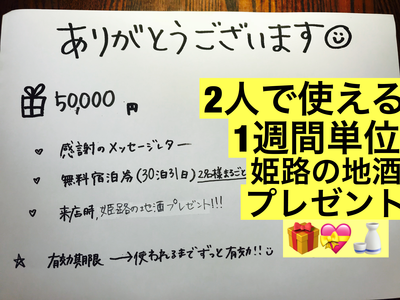 ありがとうございます
50,000 円
♡ 感謝のメッセージレター
♡ 無料宿泊券(30泊31日)2名様まるごと
♡ 来店時、姫路の地酒プレゼント!!!
☆ 有効期限 → 使われるまでずっと有効!!
2人で使える
1週間単位
姫路の地酒
プレゼント